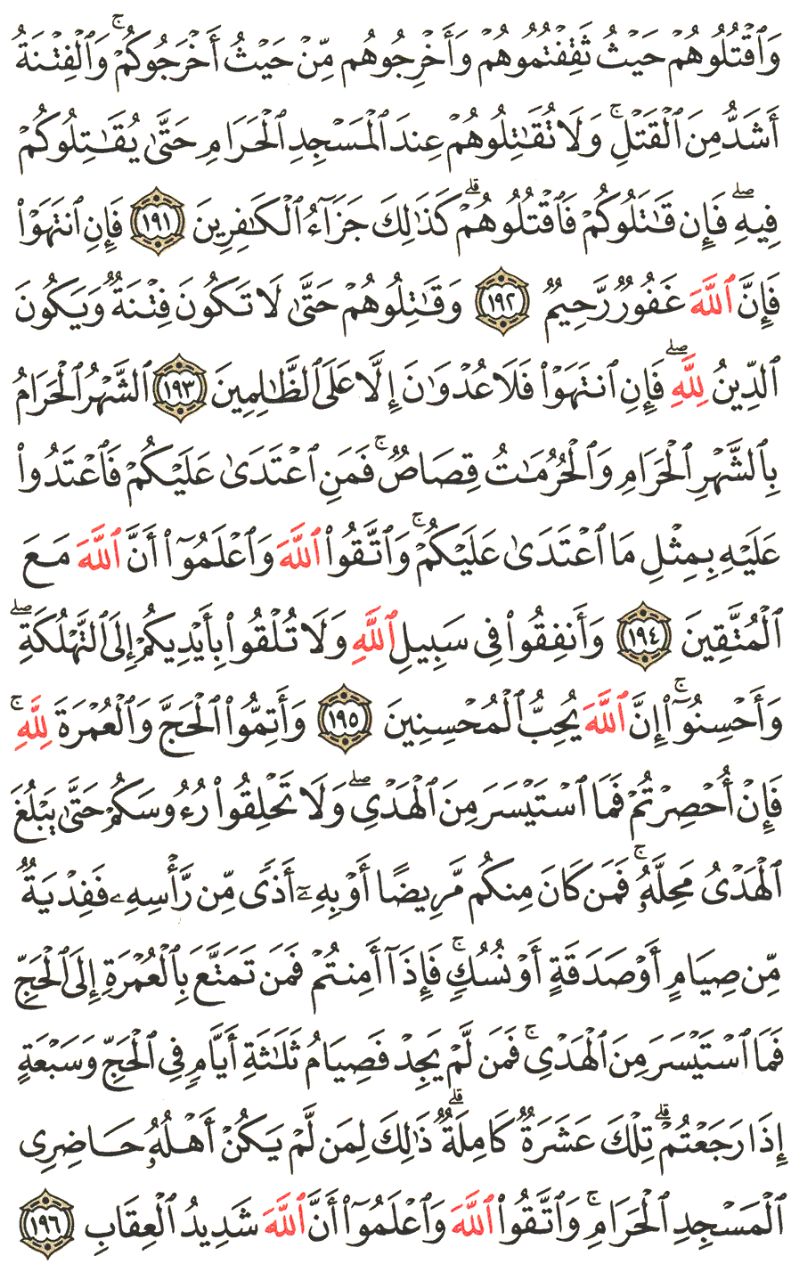 وَٱقۡتُلُوهُمۡ حَيۡثُ ثَقِفۡتُمُوهُمۡ وَأَخۡرِجُوهُم مِّنۡ حَيۡثُ أَخۡرَجُوكُمۡۚ وَٱلۡفِتۡنَةُ
أَشَدُّ مِنَ ٱلۡقَتۡلِۚ وَلَا تُقَٰتِلُوهُمۡ عِندَ ٱلۡمَسۡجِدِ ٱلۡحَرَامِ حَتَّىٰ يُقَٰتِلُوكُمۡ
فِيهِۖ فَإِن قَٰتَلُوكُمۡ فَٱقۡتُلُوهُمۡۗ كَذَٰلِكَ جَزَآءُ ٱلۡكَٰفِرِينَ ١٩١ فَإِنِ ٱنتَهَوۡاْ
فَإِنَّ ٱللَّهَ غَفُورٞ رَّحِيمٞ ١٩٢ وَقَٰتِلُوهُمۡ حَتَّىٰ لَا تَكُونَ فِتۡنَةٞ وَيَكُونَ
ٱلدِّينُ لِلَّهِۖ فَإِنِ ٱنتَهَوۡاْ فَلَا عُدۡوَٰنَ إِلَّا عَلَى ٱلظَّٰلِمِينَ ١٩٣ ٱلشَّهۡرُ ٱلۡحَرَامُ
بِٱلشَّهۡرِ ٱلۡحَرَامِ وَٱلۡحُرُمَٰتُ قِصَاصٞۚ فَمَنِ ٱعۡتَدَىٰ عَلَيۡكُمۡ فَٱعۡتَدُواْ
عَلَيۡهِ بِمِثۡلِ مَا ٱعۡتَدَىٰ عَلَيۡكُمۡۚ وَٱتَّقُواْ ٱللَّهَ وَٱعۡلَمُوٓاْ أَنَّ ٱللَّهَ مَعَ
ٱلۡمُتَّقِينَ ١٩٤ وَأَنفِقُواْ فِي سَبِيلِ ٱللَّهِ وَلَا تُلۡقُواْ بِأَيۡدِيكُمۡ إِلَى ٱلتَّهۡلُكَةِۖ
وَأَحۡسِنُوٓاْۚ إِنَّ ٱللَّهَ يُحِبُّ ٱلۡمُحۡسِنِينَ ١٩٥ وَأَتِمُّواْ ٱلۡحَجَّ وَٱلۡعُمۡرَةَ لِلَّهِۚ
فَإِنۡ أُحۡصِرۡتُمۡ فَمَا ٱسۡتَيۡسَرَ مِنَ ٱلۡهَدۡيِۖ وَلَا تَحۡلِقُواْ رُءُوسَكُمۡ حَتَّىٰ يَبۡلُغَ
ٱلۡهَدۡيُ مَحِلَّهُۥۚ فَمَن كَانَ مِنكُم مَّرِيضًا أَوۡ بِهِۦٓ أَذٗى مِّن رَّأۡسِهِۦ فَفِدۡيَةٞ
مِّن صِيَامٍ أَوۡ صَدَقَةٍ أَوۡ نُسُكٖۚ فَإِذَآ أَمِنتُمۡ فَمَن تَمَتَّعَ بِٱلۡعُمۡرَةِ إِلَى ٱلۡحَجِّ
فَمَا ٱسۡتَيۡسَرَ مِنَ ٱلۡهَدۡيِۚ فَمَن لَّمۡ يَجِدۡ فَصِيَامُ ثَلَٰثَةِ أَيَّامٖ فِي ٱلۡحَجِّ وَسَبۡعَةٍ
إِذَا رَجَعۡتُمۡۗ تِلۡكَ عَشَرَةٞ كَامِلَةٞۗ ذَٰلِكَ لِمَن لَّمۡ يَكُنۡ أَهۡلُهُۥ حَاضِرِي
ٱلۡمَسۡجِدِ ٱلۡحَرَامِۚ وَٱتَّقُواْ ٱللَّهَ وَٱعۡلَمُوٓاْ أَنَّ ٱللَّهَ شَدِيدُ ٱلۡعِقَابِ ١٩٦